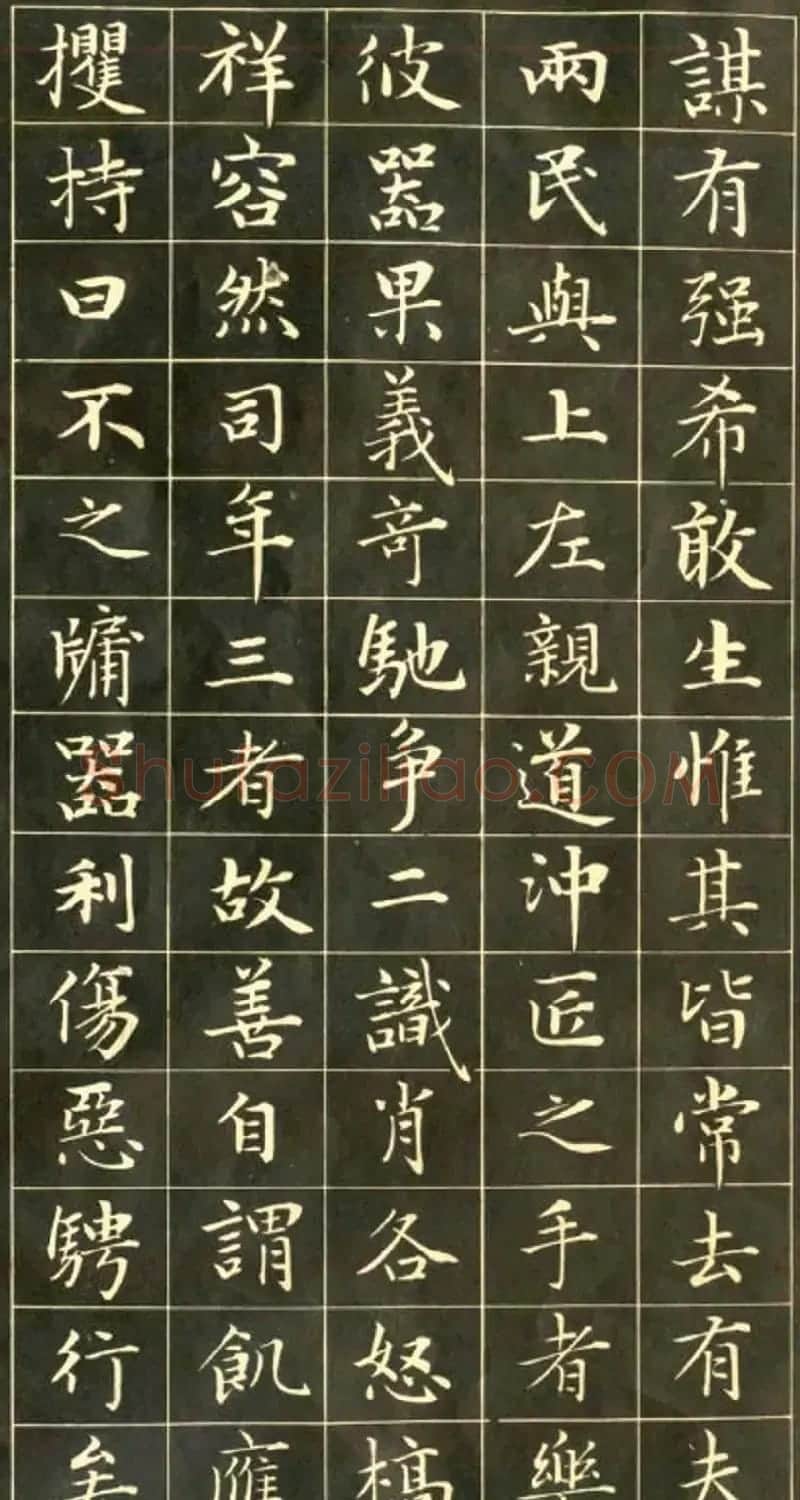 謀有强希敢生惟其皆常去有夫
兩民與上左親道沖匠之手者樂
彼器果義奇馳争二識肖各怒槁
祥容然司年三者故善自謂飢應
攫持曰不之牖器利傷惡騁行至
shufaziliao.COM